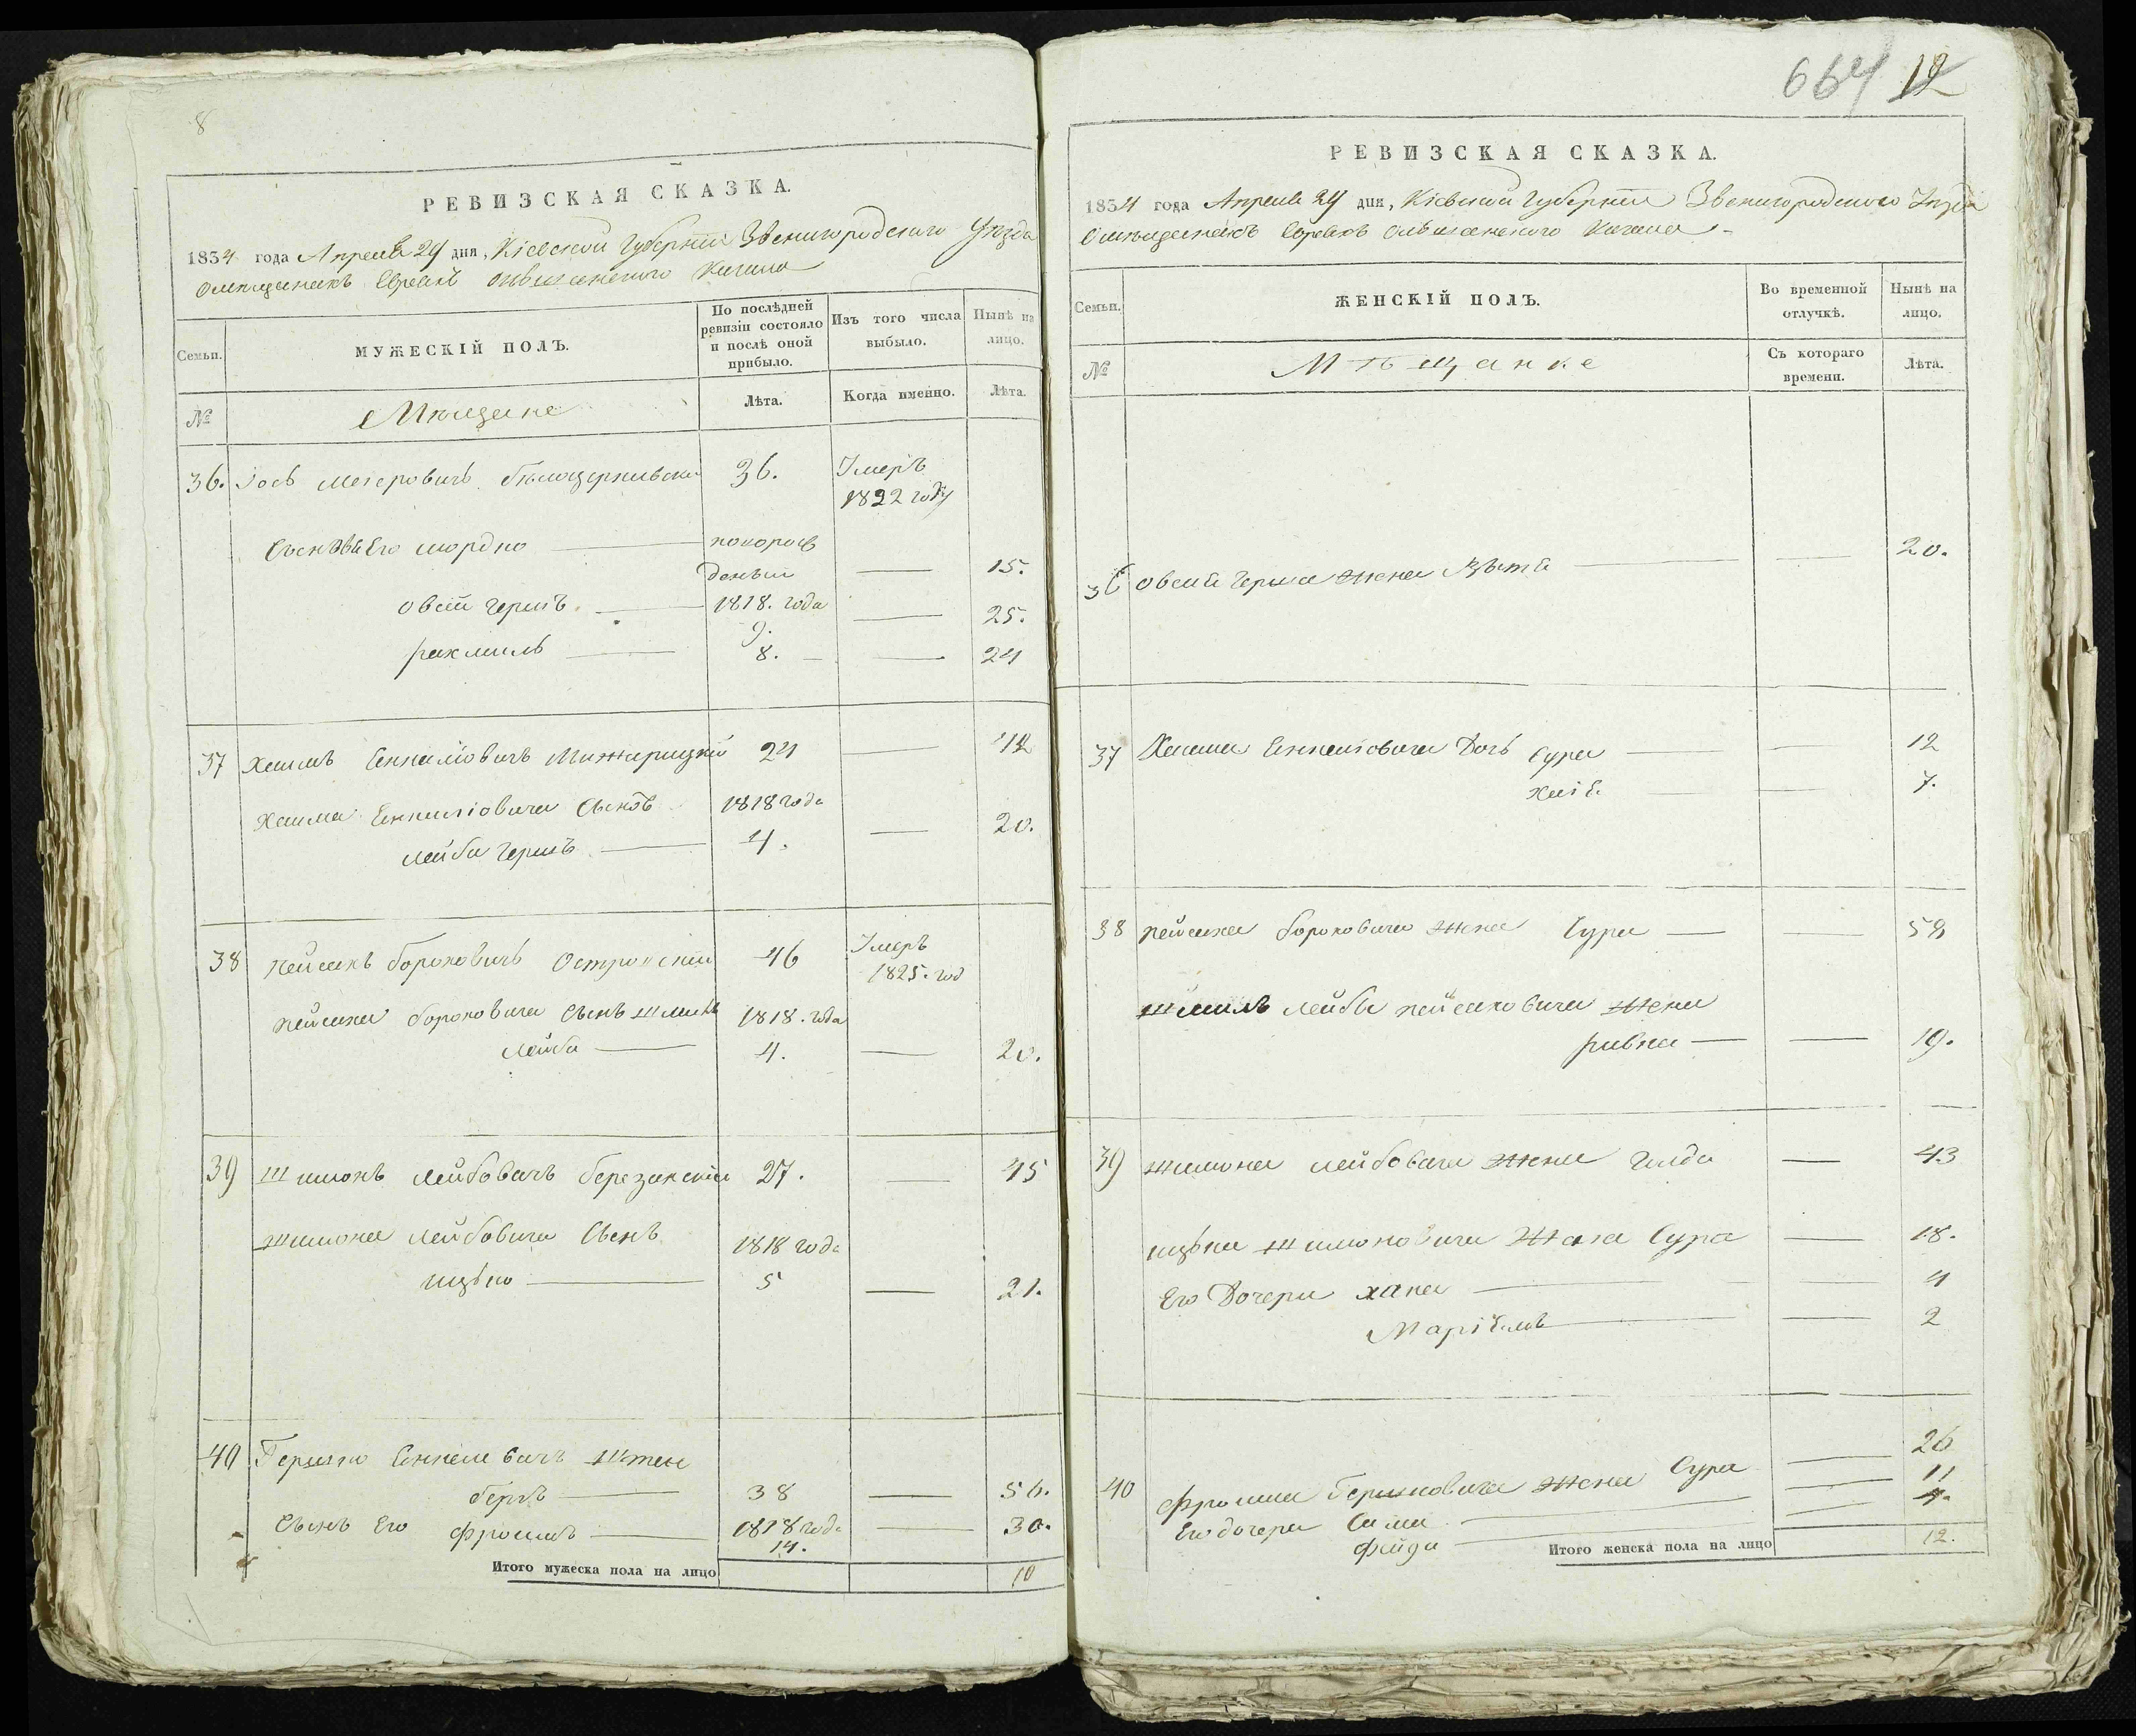 8
РЕВИЗСКАЯ СКАЗКА.
1834 года Апреля 24 дня, Кіевской Губерніи Звенигородского Уѣзда
Омѣщанахъ Евреахъ Ольшанского Кагала
Семьи.
МУЖЕСКІЙ ПОЛЪ.
По послѣдней ревизіи состояло и послѣ оной прибыло.
Изъ того числа выбыло.
Нынѣ на лицо.
№
Мѣщане
Лѣта.
Когда именно.
Лѣта.
36. Іось Меіеровичъ Бѣлоцерковски 36. Умеръ
1822 году
Сыновья Его мордко
15.
Овсій Гершъ 1818. года 25.
9.
рахмиль 8. 24
37 Хаимъ Еккеліовичъ Межирицкій 24 42
Хаима Еккеліовича Сынъ 1818 года
лейба Гершъ 4. 20.
38 пейсахъ бороховичъ Островскій 46 Умеръ
1825. год
пейсаха бороховича Сынъ шмиль 1818. года
лейба 4. 20.
39 Шимонъ лейбовичъ березанскій 27. 45
шимона лейбовича Сынъ 1818 года
ицько 5 21.
40 Гершко Еккелевичъ штен
бергъ 38 56.
Сынъ Его фроимъ 1818 года 30.
14.
Итого мужеска пола на лицо 10
664 12
РЕВИЗСКАЯ СКАЗКА.
1834 года Апреля 24 дня, Кіевской Губерніи Звенигородского Уѣзда
Омѣщанахъ Евреахъ Ольшанского Кагала
Семьи.
ЖЕНСКІЙ ПОЛЪ.
Во временной отлучкѣ.
Нынѣ на лицо.
№
Мѣщанке
Съ котораго времени.
Лѣта.
36 Овсія Герша жена 20.
37 Хаима Еккеліовича Дочь Сура 12
Хаія 7.
38 пейсаха бороховича жена Сура 58
шмиль лейбы пейсаховича жена
ривка 19.
39 шимона лейбовича жена Голда 43
ицька шимоновича жена Сура 18.
Его Дочери хана 4
Маріямъ 2
40 фроима Гершковича жена Сура 26
Его дочери Сима 11
фейга 4.
Итого женска пола на лицо 12.